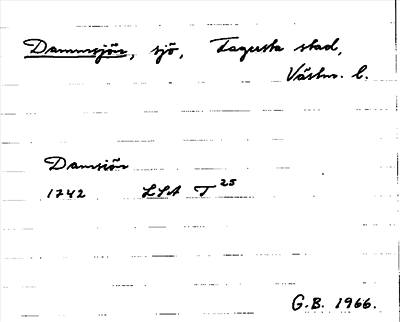 Dammsjön, sjö, Fagersta stad,
Västm. l.
Damsiön
1742 LSA T 25
G.B. 1966.